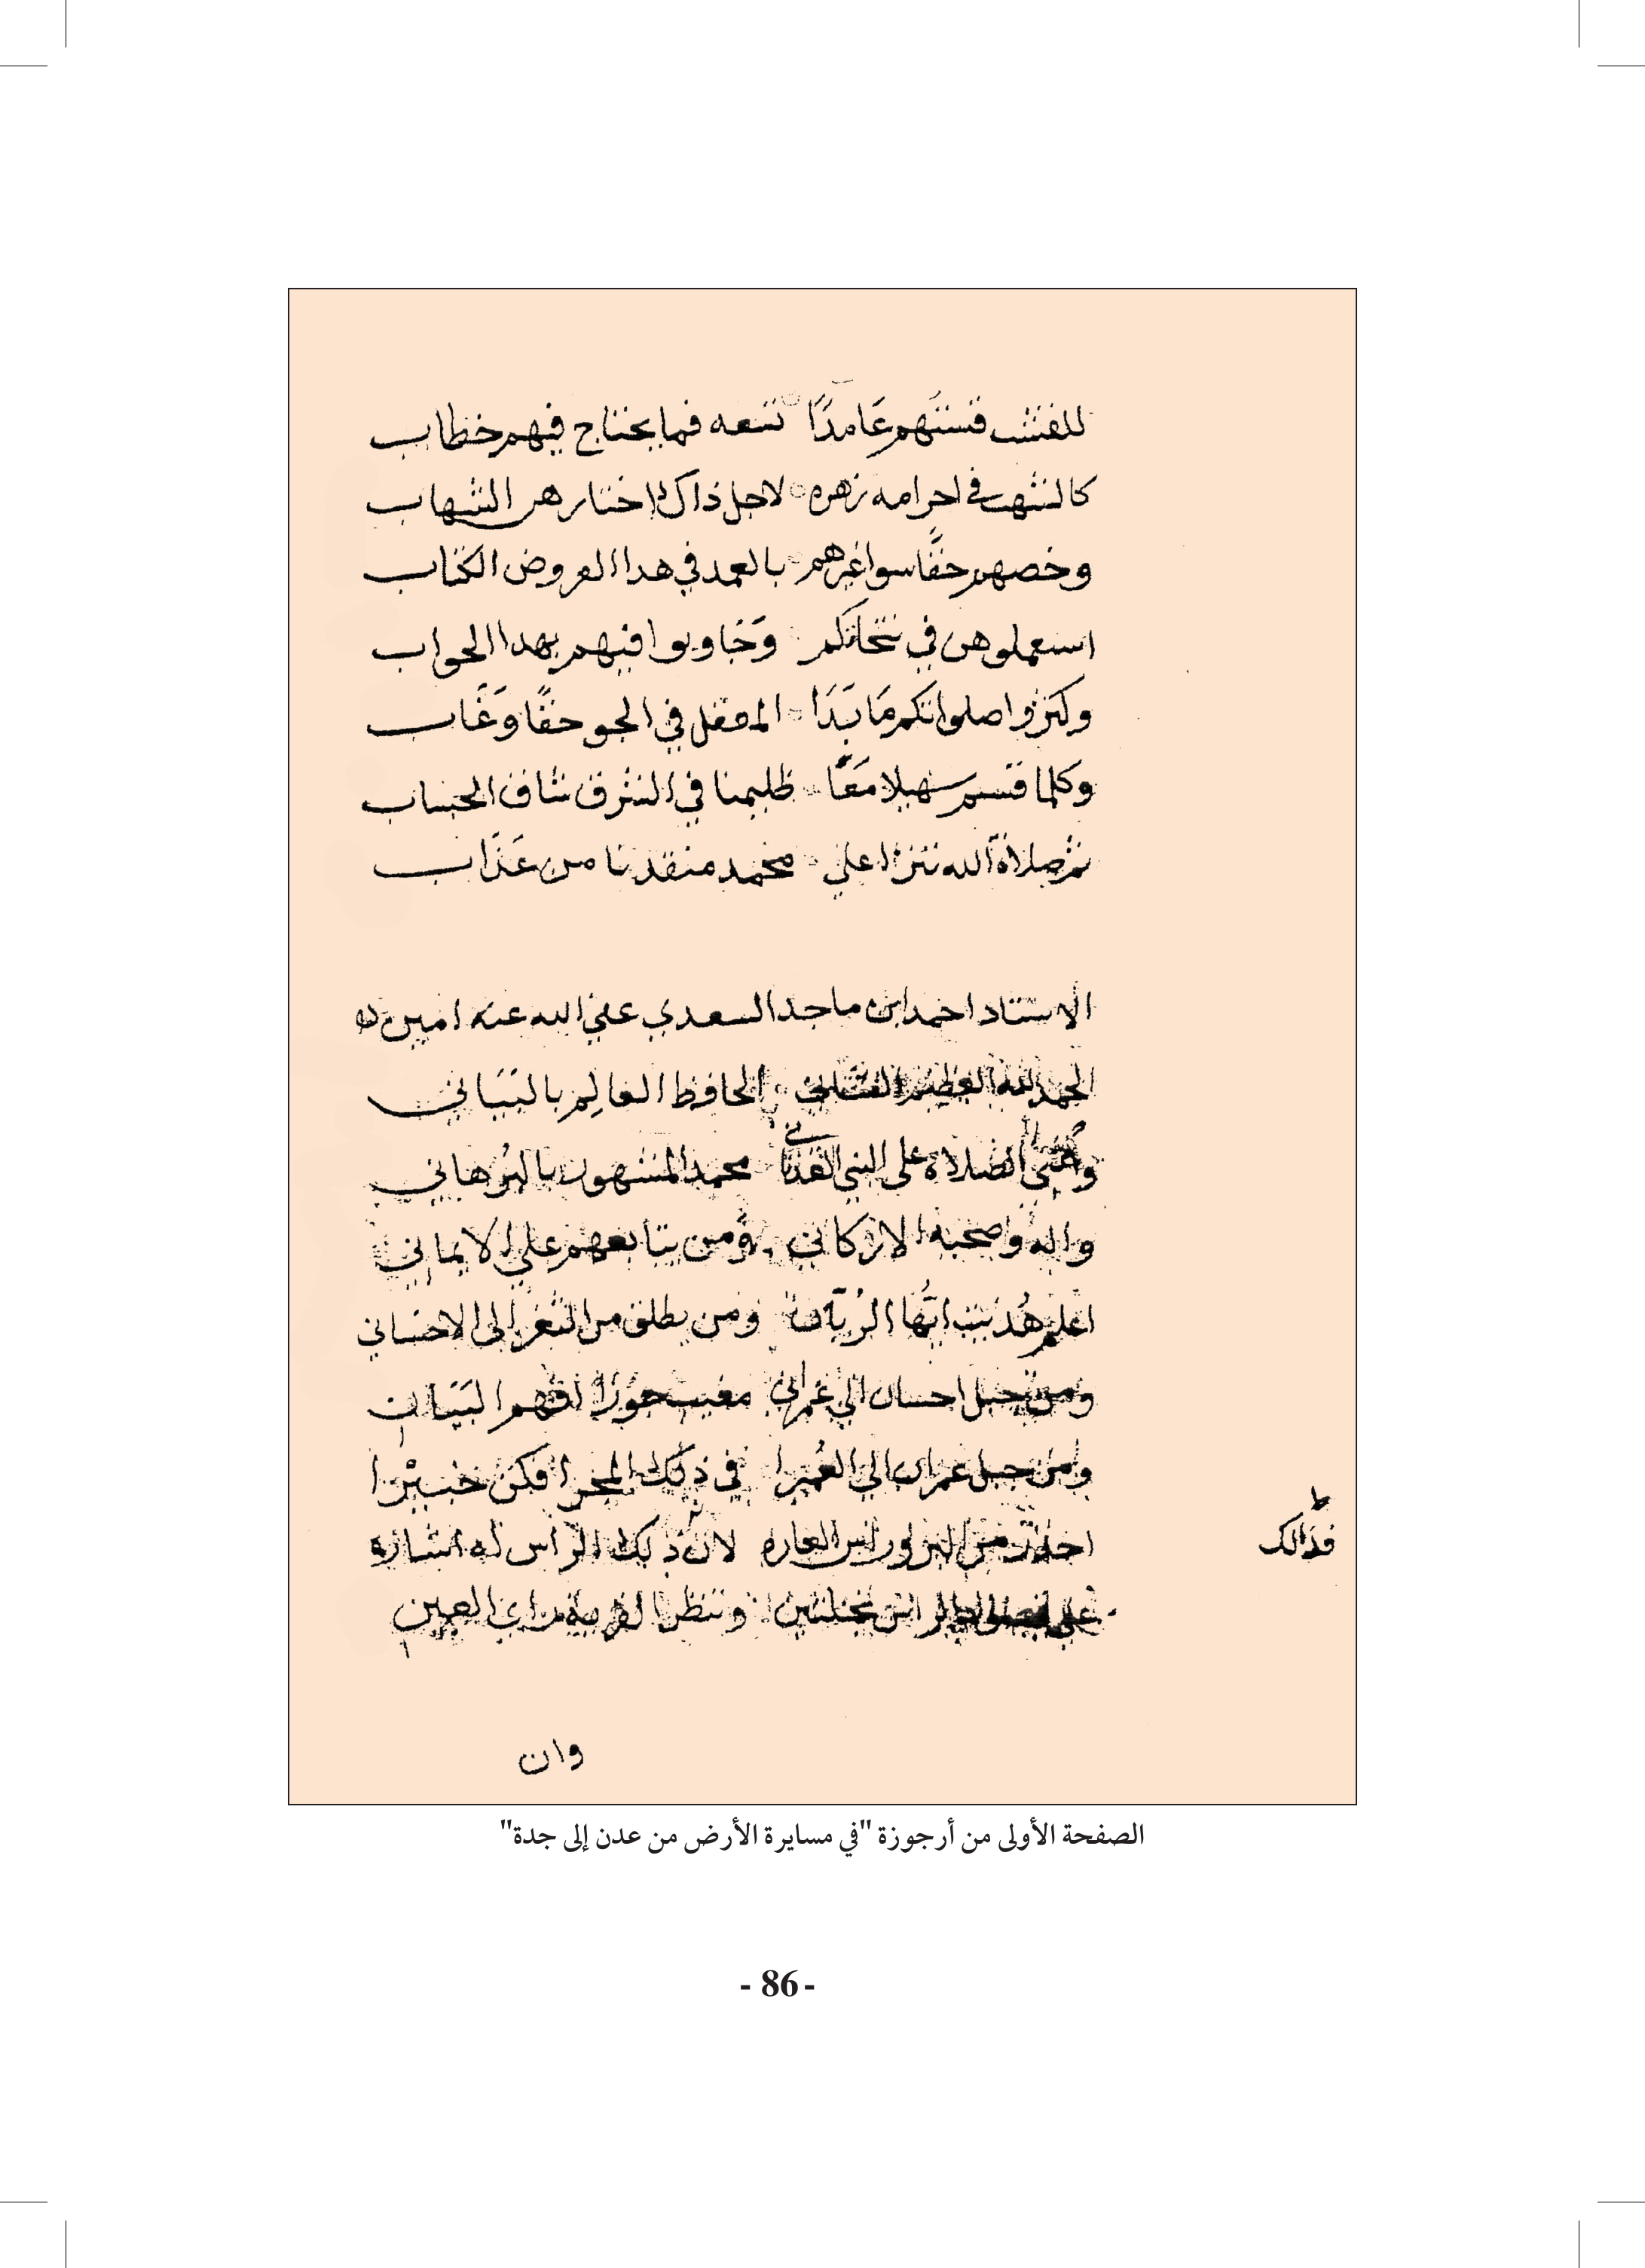 للفتش قستهم عامدًا تسعه فما يحتاج فيهم خطاب
كالشهب في احرامه زهره لاجل ذاك اختارهن الشهاب
وخصهم حقًا سوا غيرهم بالعمد في هدا العروض الكتاب
استعملوهن في نتخاتكم وجاوبوا فيهم بهدا الجواب
وكنزوا صلواتكم مَا بَدَا المعقل في الجو حقًا وغَاب
وكلما قستم سهيلا مَعًَا ظليمنا في الشرق شاف الحساب
ثم صلاة الله تترا على محمد منقدنا من عَذَاب
الاستاد احمد ابن ماجد السعدي عفي الله عنه امين
الحمد لله العظيم الشاني الحافظ العالِم بالبَيَاني
الصلاة على النبي العدناني محمد المشهور بالبُرهاني
واله وصحبه الاركاني ومن يتابعهم علي الايماني
اعلم هُديت ايُّها الرُبّان ومن يطلق من الثغر الى الاحساني
ومن جبل احسان الي عمران مغيب جوزا افهم البَيَان
ومن جبل عمران الي العُميرا في ذلك المجرا فكن خبيْرا
احذر من البر وراس العاره لان ذلك الراس له اشاره
فذالك
وتنظر القرية راي العين
وان
الصفحة الأولى من أرجوزة "في مسايرة الأرض من عدن إلى جدة"
- 86 -